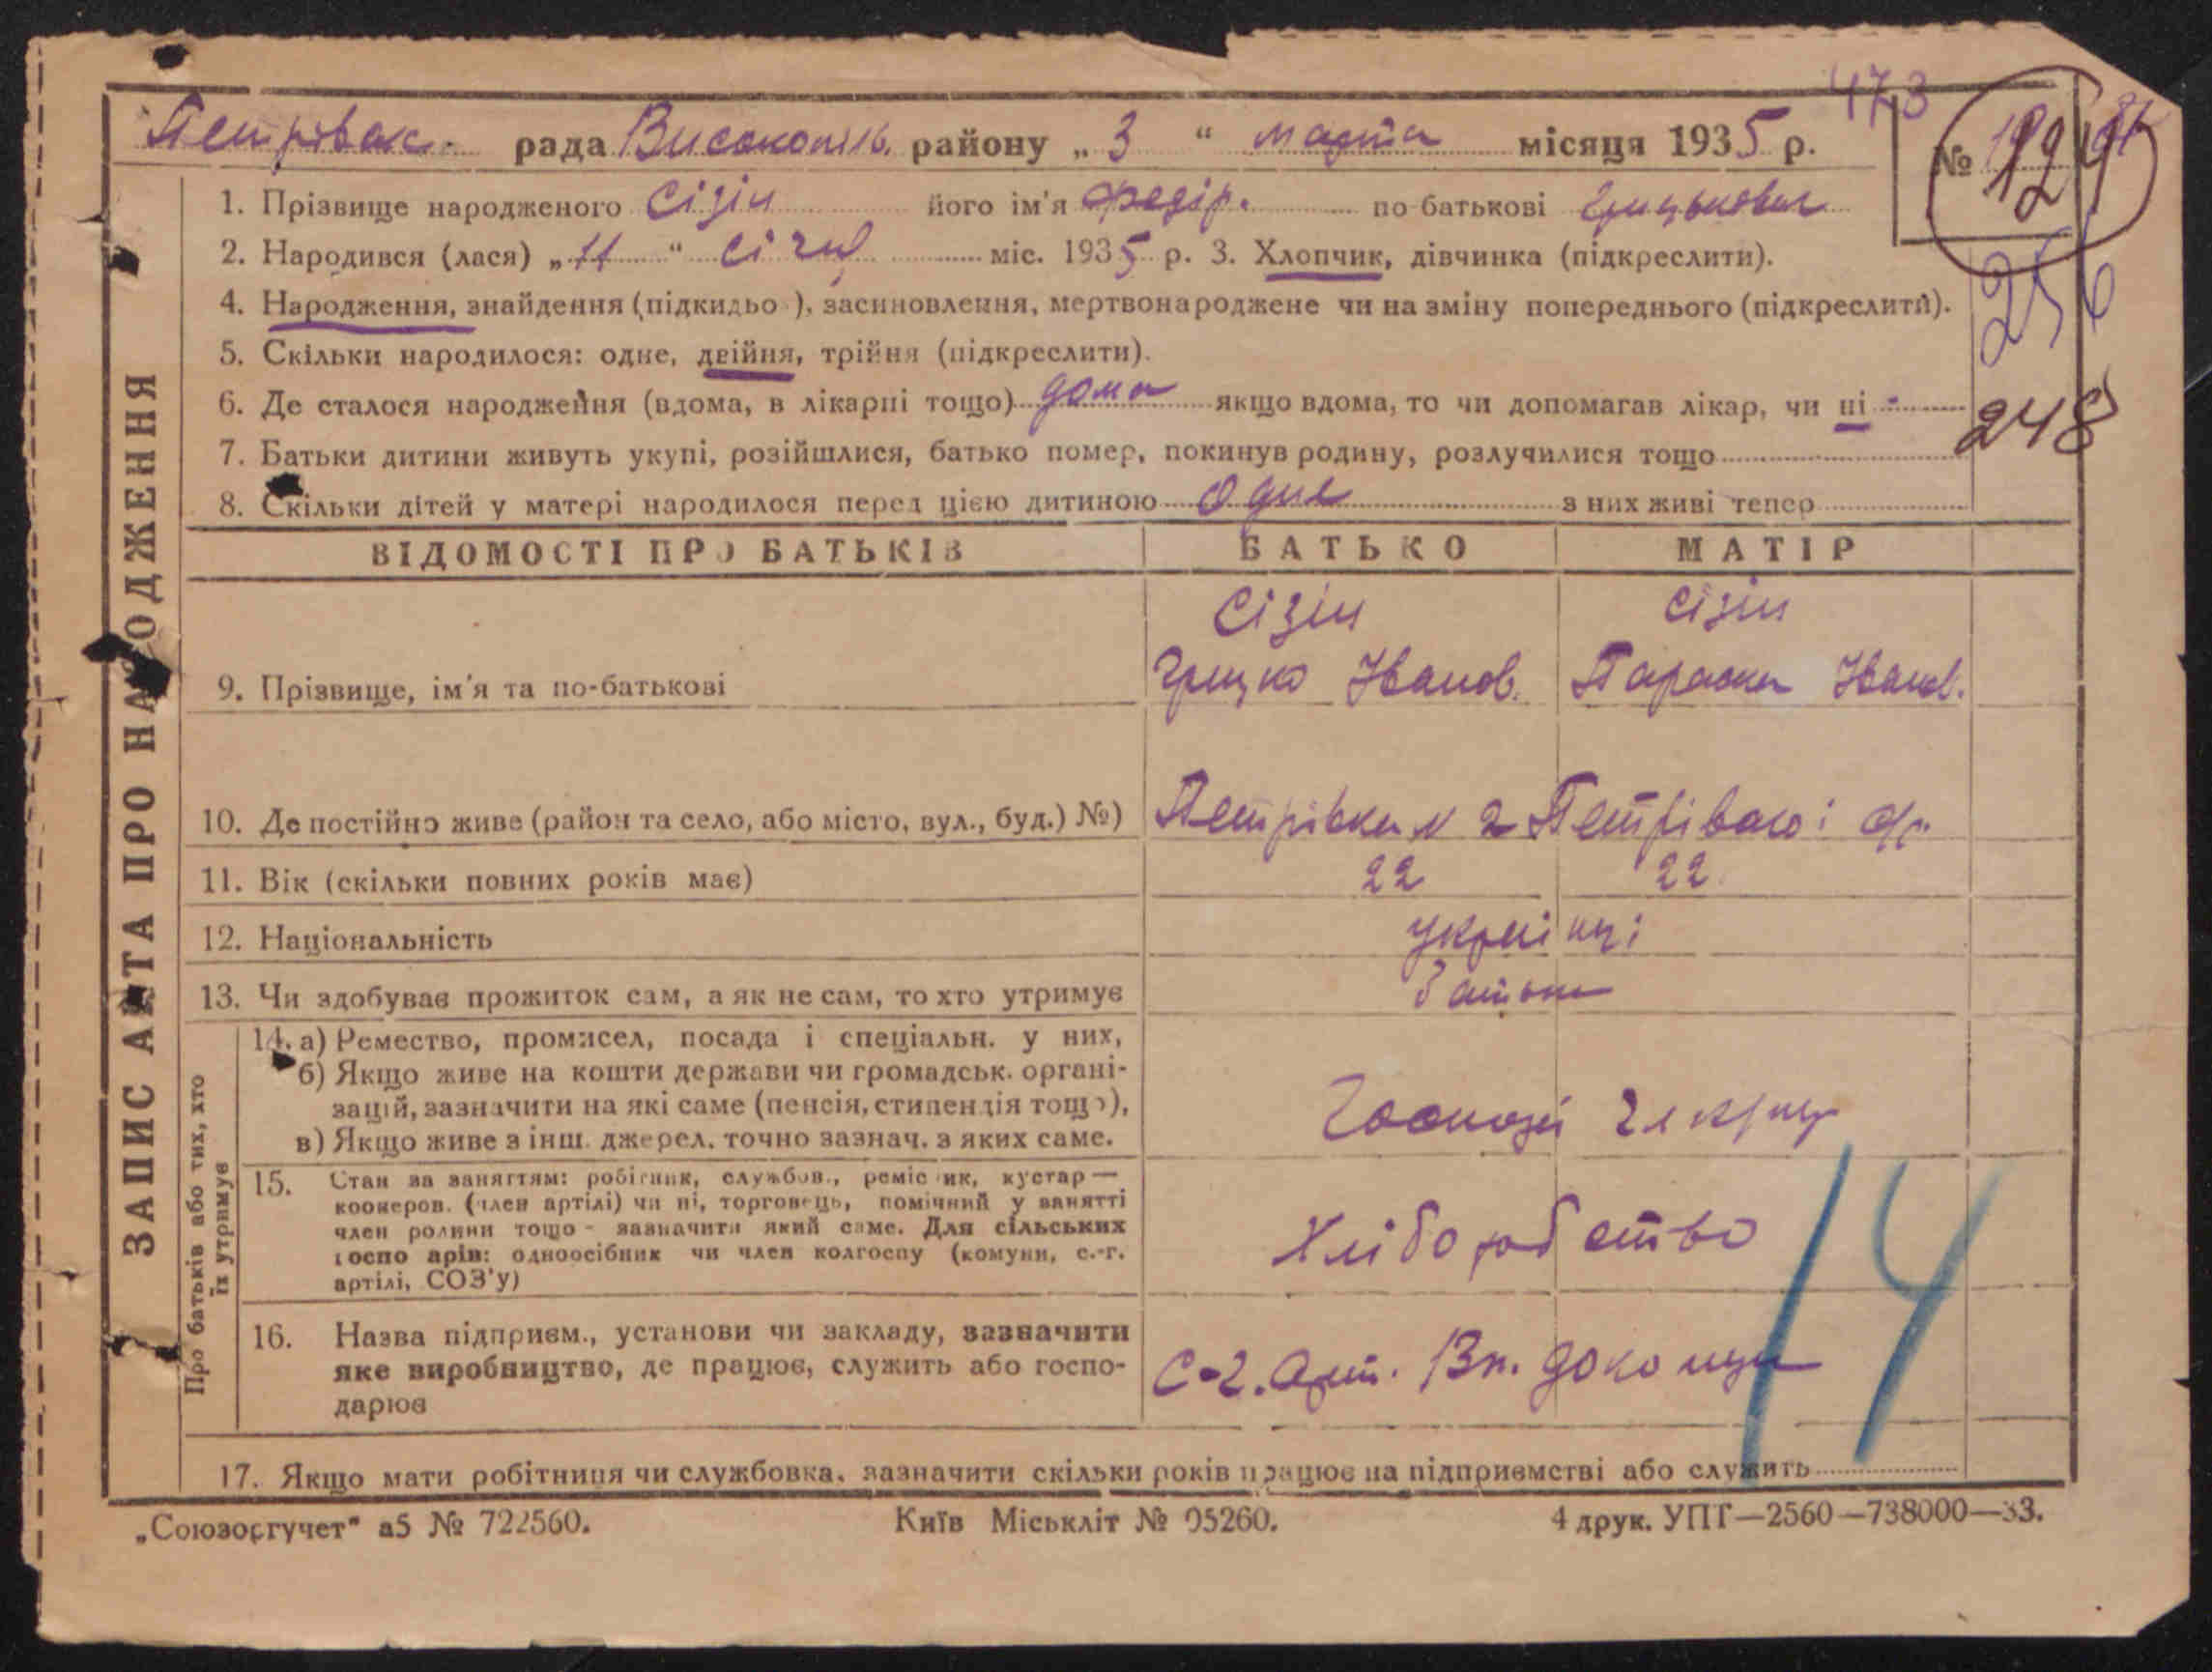 473
Петрівск. рада Високопіль. району „3“ марта місяця 1935 р. №
1. Прізвище народженого Сізін його ім'я Федір. по батькові Грицькович
2. Народився (лася) „11“ січня міс. 1935 р. 3. Хлопчик, дівчинка (підкреслити).
256
4. Народження, знайдення (підкидьо ), засиновлення, мертвонароджене чи на зміну попереднього (підкреслити).
5. Скільки народилося: одне, двійня, трійня (підкреслити).
6. Де сталося народження (вдома, в лікарні тощо) дома якщо вдома, то чи допомагав лікар, чи ні -
248
7. Батьки дитини живуть укупі, розійшлися, батько помер, покинув родину, розлучилися тощо
8. Скільки дітей у матері народилося перед цією дитиною Одне з них живі тепер
ЗАПИС АКТА ПРО НАРОДЖЕННЯ
ВІДОМОСТІ ПРО БАТЬКІВ БАТЬКО МАТІР
Сізін Сізін
9. Прізвище, ім'я та по-батькові Грицко Іванов. Параска Іванов.
10. Де постійно живе (район та село, або місто, вул., буд.) №) Петрівка
11. Вік (скільки повних років має) 22 22
12. Національність українці
13. Чи здобуває прожиток сам, а як не сам, то хто утримує батьки
Про батьків або тих, хто їх утримує
14. а) Ремество, промисел, посада і спеціальн. у них,
б) Якщо живе на кошти держави чи громадськ. органі-
зацій, зазначити на які саме (пенсія, стипендія тощо),
в) Якщо живе з інш. джерел. точно зазнач. з яких саме.
15. Стан за заняттям: робітник, службов., реміс ик, кустар —
кооперов. (член артілі) чи ні, торговець, помічний у занятті
член родини тощо - зазначити який саме. Для сільських
госпо арів: одноосібник чи член колгоспу (комуни, с.-г.
артілі, СОЗ'у)
Хліборобство
14
16. Назва підприєм., установи чи закладу, зазначити
яке виробництво, де працює, служить або госпо-
дарює
С-г. Арт.
17. Якщо мати робітниця чи службовка, зазначити скільки років працює на підприємстві або служить
„Союзоргучет" а5 № 722560. Київ Міськліт № 05260. 4 друк. УПТ—2560—738000—33.